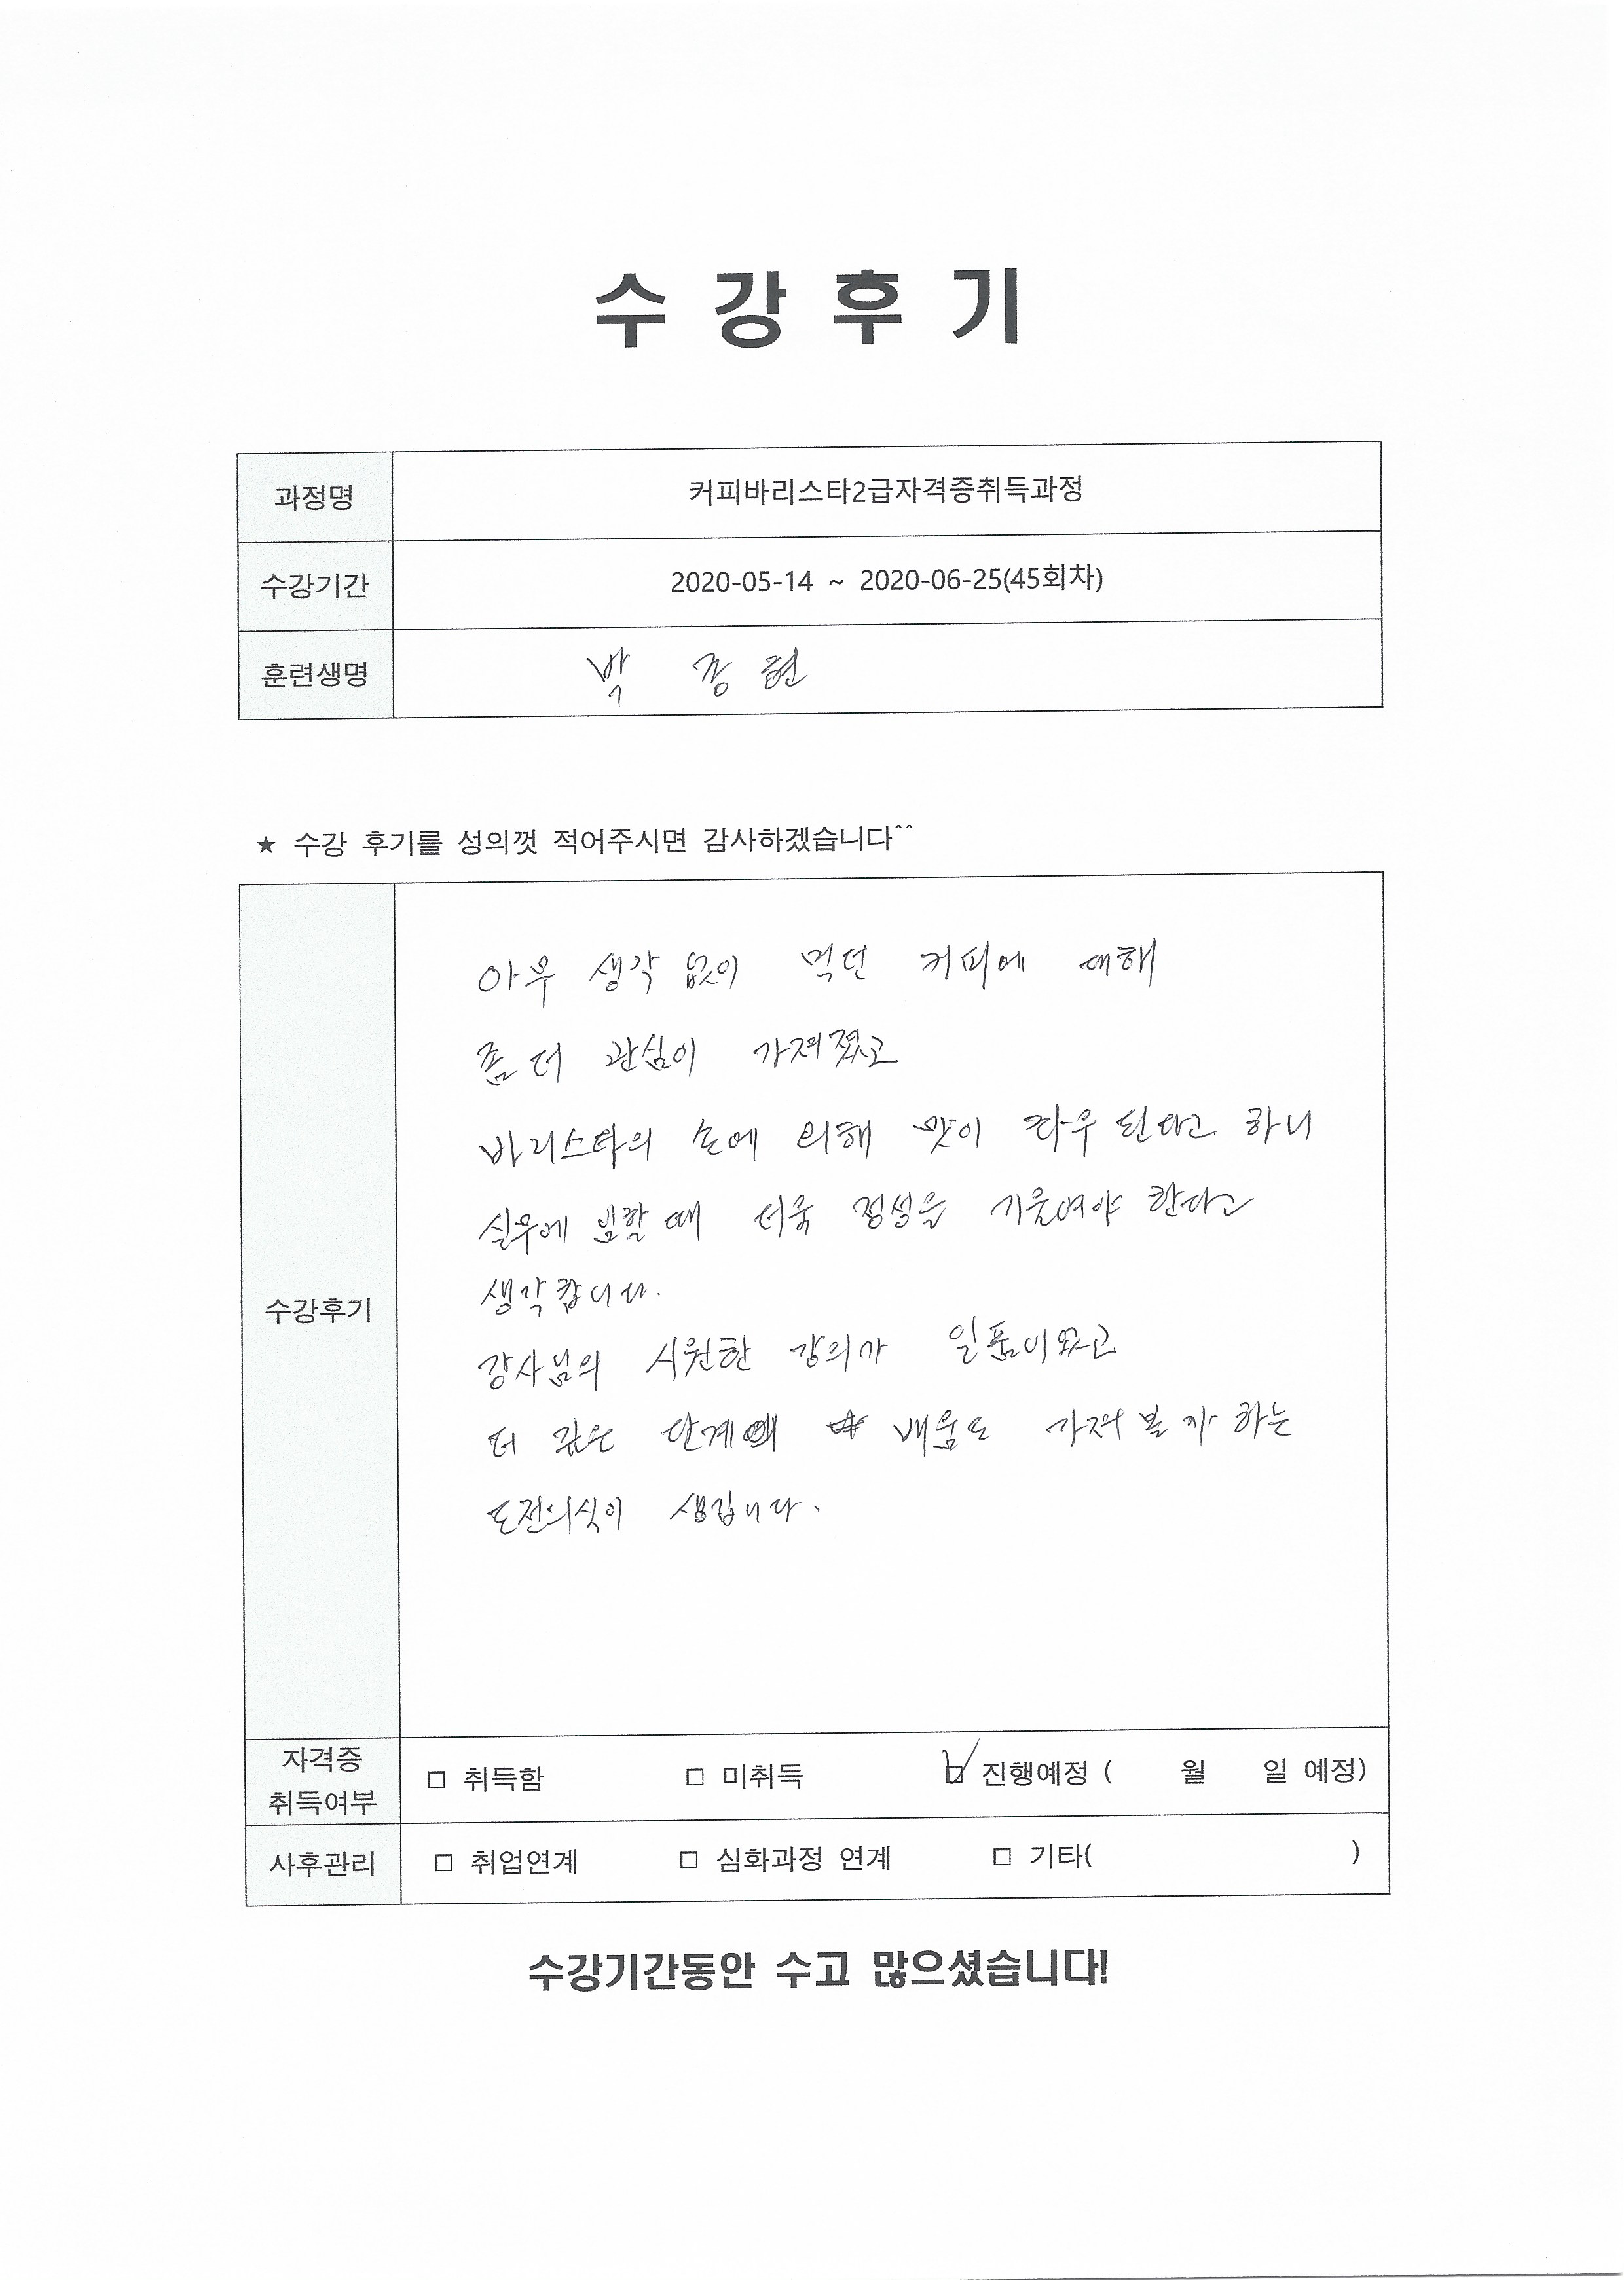 수 강 후 기
과정명 커피바리스타2급자격증취득과정
수강기간 2020-05-14 ~ 2020-06-25(45회차)
훈련생명 박 종현
★ 수강 후기를 성의껏 적어주시면 감사하겠습니다^^
수강후기
아무 생각 없이 먹던 커피에 대해
좀 더 관심이 가져졌고
바리스타의 손에 의해 맛이 좌우 된다고 하니
실무에 임할 때 더욱 정성을 기울여야 한다고
생각합니다.
강사님의 시원한 강의가 일품이였고
더 깊은 단계 배움도 가져볼까 하는
도전의식이 생깁니다.
자격증 취득여부 □ 취득함 □ 미취득 ☑ 진행예정 ( 월 일 예정)
사후관리 □ 취업연계 □ 심화과정 연계 □ 기타( )
수강기간동안 수고 많으셨습니다!